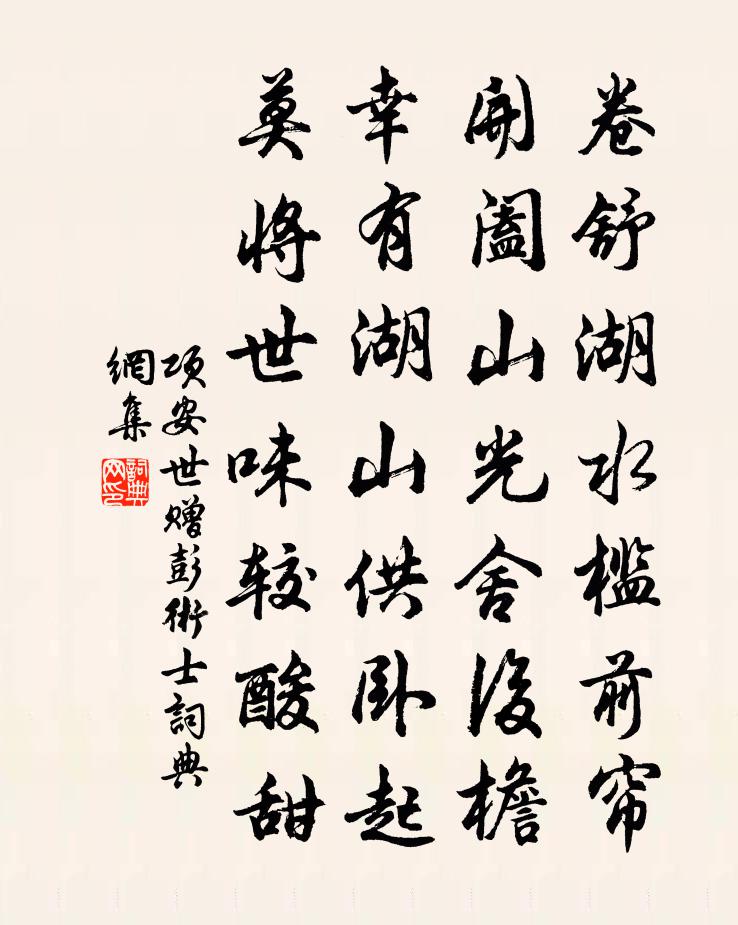 卷舒湖水槛前帘
開阖山光舍後檐
幸有湖山供卧起
莫將世味较酸甜
项安世赠彭術士詞典
網集
詞典网印